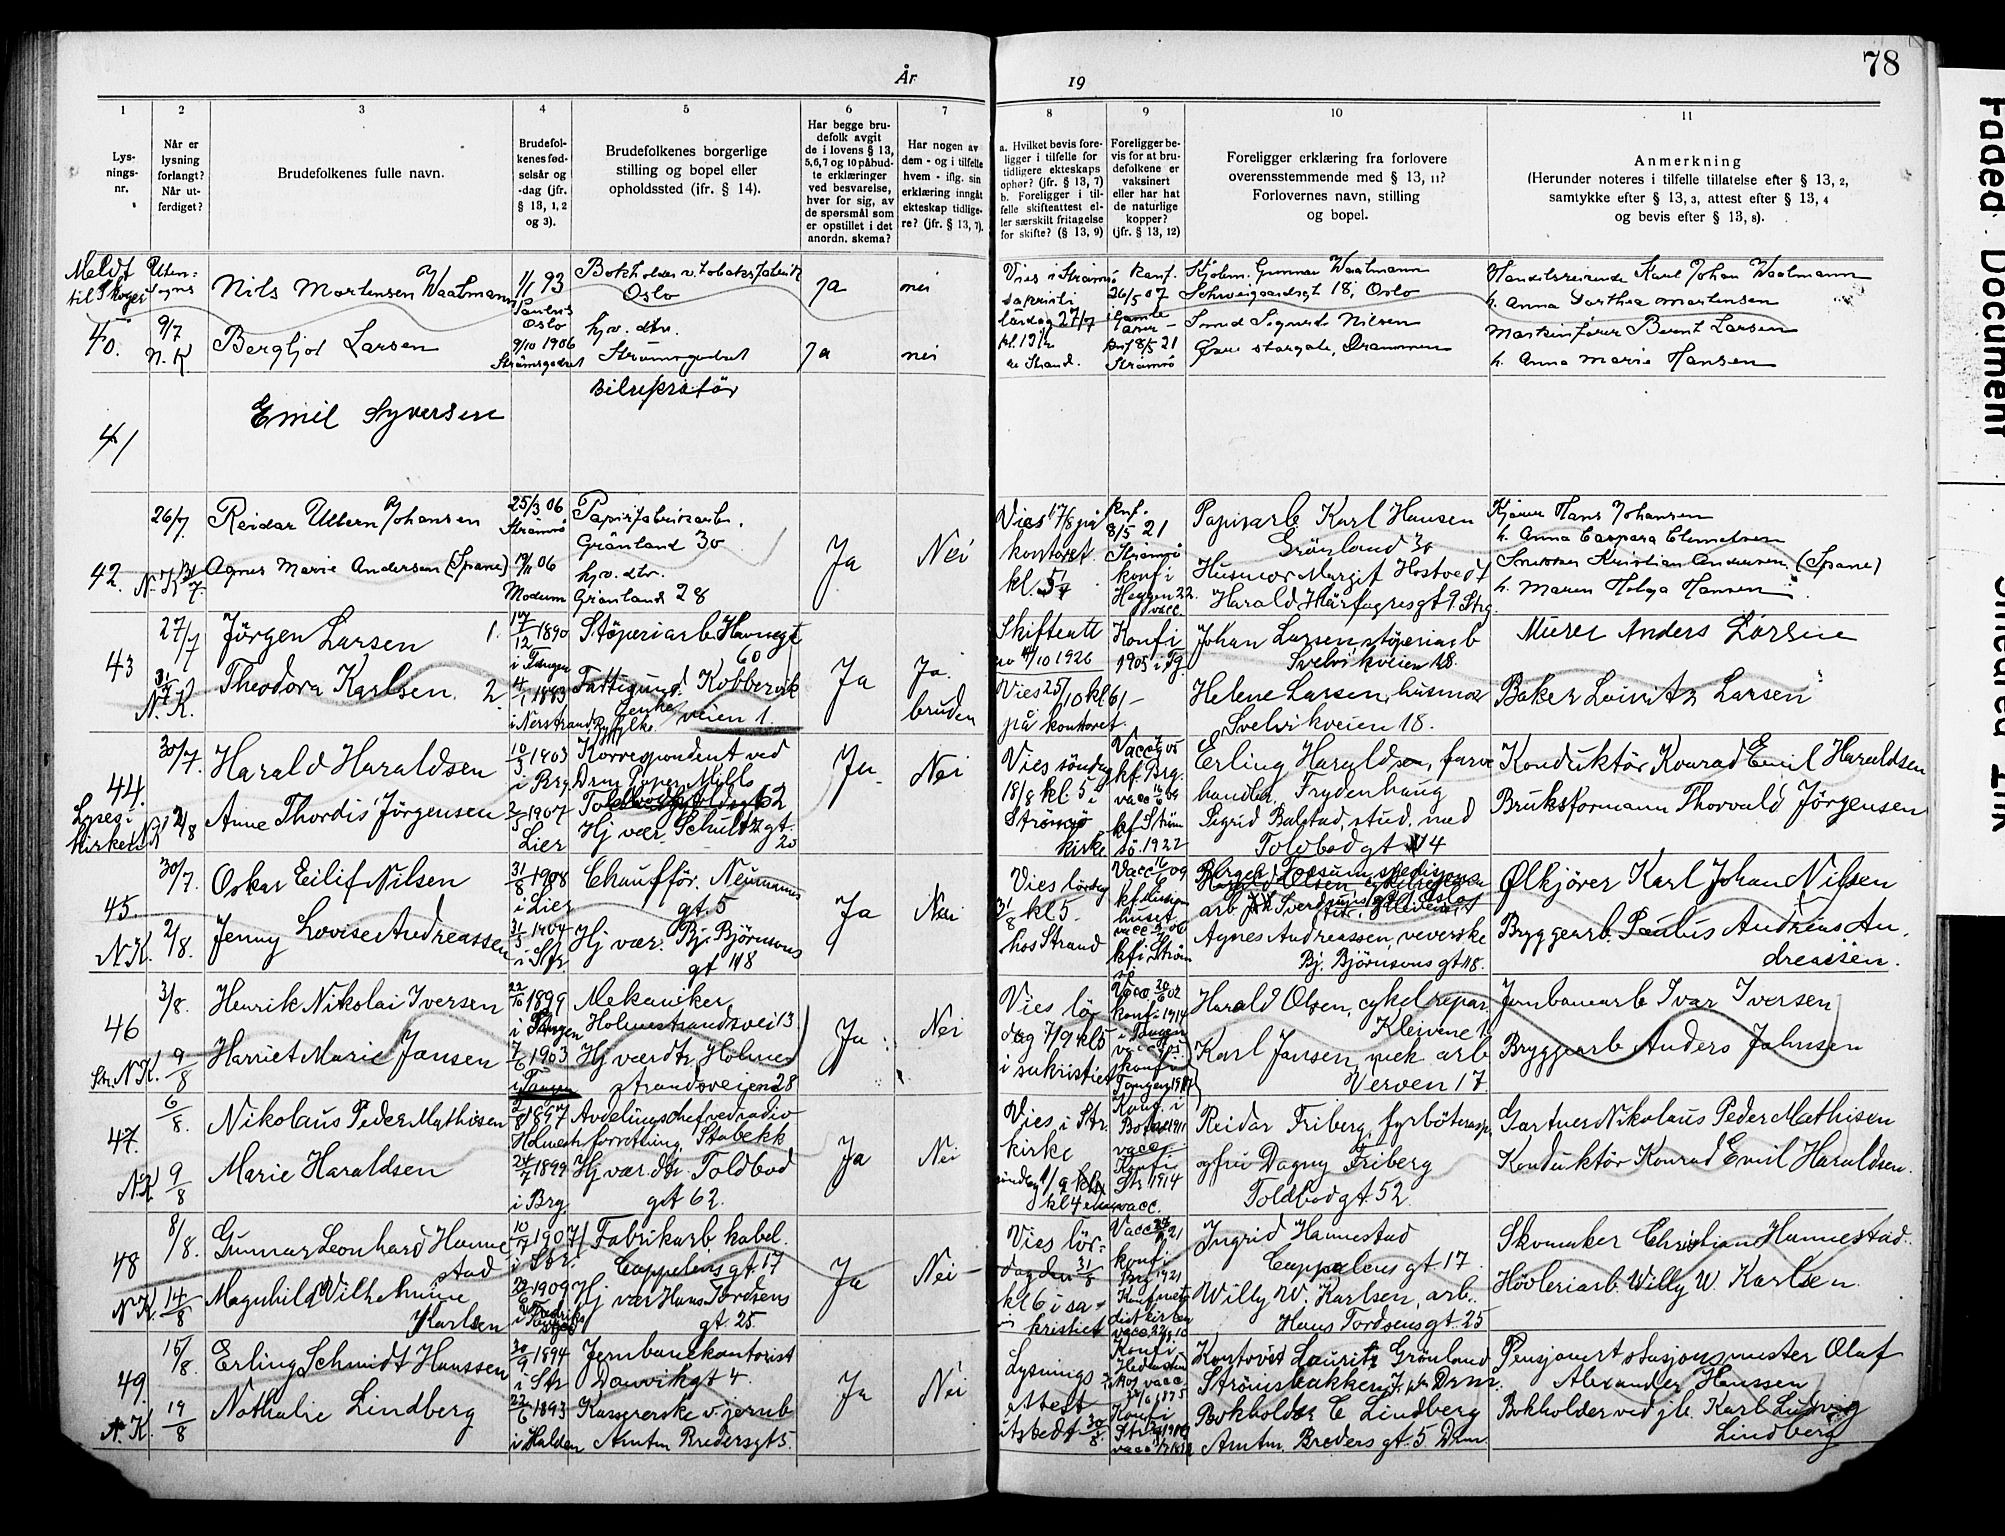 78
År
19
1
2
3
4
5
6
7
8
9
10
11
Lys-
nings-
nr.
Når er
lysning
forlangt?
Når ut-
ferdiget?
Brudefolkenes fulle navn.
Brudefol-
kenes fød-
selsår og
-dag (jfr.
§ 13, 1, 2
og 3).
Brudefolkenes borgerlige
stilling og bopel eller
opholdssted (jfr. § 14).
Har begge bru-
defolk avgit
de i lovens § 13,
5, 6, 7 og 10 påbud-
te erklæringer
ved besvarelse,
hver for sig, av
de spørsmål som
er opstillet i det
anordn. skema?
Har nogen av
dem - og i tilfelle
hvem - iflg. sin
erklæring inngåt
ekteskap tidlige-
re? (jfr. § 13, 7).
a. Hvilket bevis fore-
ligger i tilfelle for
tidligere ekteskaps
ophør? (jfr. § 13, 7)
b. Foreligger i til-
felle skifteattest el-
ler særskilt fritagelse
for skifte? (§ 13, 9)
Foreligger be-
vis for at bru-
defolkene er
vaksinert
eller har hat
de naturlige
kopper?
(jfr. § 13, 12)
Foreligger erklæring fra forlovere
overensstemmende med § 13, 11?
Forlovernes navn, stilling
og bopel.
Anmerkning
(Herunder noteres i tilfelle tillatelse efter § 13, 2,
samtykke efter § 13, 3, attest efter § 13, 4
og bevis efter § 13, 8).
Meldt
til Skoger
40.
Uten-
sogns
9/7
N.K
Nils Martensen Waatmann
Bergljot Larsen
1/1 93
Oslo
9/10 1906
Strømsgodset
Bokholder v. tobaksfabrik
Oslo
hj.v. dtr.
Strømsgodset
Ja
Ja
nei
nei
Vies i Strømsö
sakristi
lørdag 27/7
kl. 12½
av Strand.
Konf.
26/5 07
Gamle
konf 8/5 21
Strømsö
Gunnar Waatmann
Schweigaardsgt 18, Oslo
Smed Sigurd Nilsen
Øvre storgate, Drammen
Handelsreisende Karl Johan Waatmann
h. Anna Dorthea Martensen
Maskinfører Bernt Larsen
h. Anna Marie Hansen
41
Emil Syversen
Bilreparatör
42.
26/7
N.K 31/7.
Reidar Uttern Johansen
Agnes Marie Andersen (Spane)
25/3 06
Strømsö
06
Modum
Papirfabrikarb.
Grönland 30
hj.v. dtr.
Grønland 28
Ja
Nei
Vies 17/8 på
kontoret
kl. 5
knf.
8/5 21
Strømsö
konf i
Heggen 22.
vacc.
Papirarb Karl Hansen
Grönland 30
Husmor Margit Hostvedt
Harald Hårfagresgt 9. Strg.
Kjører Hans Johansen
h. Anna Caspara Clemetsen
Kristian Andersen (Spane)
h. Maren Helga Hansen
43
27/7
31/7
N.K.
Jörgen Larsen 1.
Theodora Karlsen. 2.
17/12 1890
i Tangen
4/1 1883
i Nerstrand, Ryfylke
Stöperiarb. Havnegt
60
Fattigund. Kobbervik
enke veien 1.
Ja
Ja.
bruden
Skifteatt
av 14/10 1926
Vies 25/10 kl 6
på kontoret.
Konf i
1905 i Tg.
Johan Larsen, stöperiarb
Svelvikveien 18.
Helene Larsen, husmor
Svelvikveien 18.
Murer Anders Larsen
Baker Lauritz Larsen
44.
Lyses i
kirken
30/7.
N.K 2/8
Harald Haraldsen
Anne Thordis Jörgensen
10/3 1903
i Brg.
2/5 1907
Lier
Korrespondent ved
Drm Paper Mills
Toldbodgt 62
Hj vær. Schultz gt.
20
Ja
Nei
Vies söndag
18/8 kl 5 i
Strømsö
kirke
kf Brg.
kf Ström
sö. 1922
Erling Haraldsen, farve
handler, Frydenhaug
Sigrid Balstad, stud. med
Toldbod gt 14
Konduktör Konrad Emil Haraldsen
Bruksformann Thorvald Jörgensen
45.
N.K.
30/7.
2/8.
Oskar Eilif Nilsen
Jenny Lovise Andreassen
31/8 1908
i Lier
31/3 1904
i Str
Chaufför. Neumanns
gt. 5
Hj vær. Bj. Björnsons
gt 118
Ja
Nei
Vies lördag
31/8 kl 5.
hos Strand
Vacc 16/6 09
kf i Ström
sö
Birger Fossum, spedisjons
arb
Agnes Andreassen, veverske
Bj. Björnsonsgt 118.
Ølkjörer Karl Johan Nilsen
Bryggearb. Paulus Andreas An.
dreassen.
46
Str. N.K.
3/8.
9/8
Henrik Nikolai Iversen
Harriet Marie Jansen
22/10 1899
i Tangen
7/6 1903
i Tangen
Mekaniker,
Holmestrandsvei 13
Hj vær dtr. Holmes
strandsveien 28
Ja
Nei
Vies lör
dag 7/9 kl 5
i sakristiet
Vacc 20/6 02
konf 1914
i Tangen
konf i
Tangen 1917
Harald Olsen, cykelrepar.
Kleivene 1.
Karl Jansen, mek arb
Verven 17.
Jernbanearb Ivar Iversen
Bryggearb Anders Johnsen
47.
N.K
6/8.
9/8
Nikolaus Peder Mathisen
Marie Haraldsen
2/8 1897
24/7 1899
i Brg.
Avdelingschef ved radio
forretning, Stabekk
Hj vær. dtr. Toldbod
gt 62.
Ja
Nei
Vies i Str.
kirke
söndag 1/9
kl 4
Konf. i
vacc
Konf i
Str 1914
vacc.
Reidar Friberg, fyrböterasp
og fru Dagny Friberg
Toldbodgt. 52
Gartner Nikolaus Peder Mathisen
Konduktör Konrad Emil Haraldsen.
48
N.K. 14/8
8/8.
Gunnar Leonhard Hanne
stad
Magnhild Vilhelmine
Karlsen
10/7 1907
i Str.
1909
Fabrikarb. kabel.
Cappelens gt. 17
Hj vær Hans Tordsens
gt. 25
Ja
Nei
Vies lör-
dag den 31/8
kl 6 i sa-
kristiet
konf i
Brg 1921
Ingrid Hannestad
Cappelens gt 17.
Willy W. Karlsen, arb.
Hans Tordsensgt. 25
Skomaker Christian Hannestad.
Høvleriarb. Willy W. Karlsen.
49
N.K.
15/8.
19/8
Erling Schmidt Hanssen
Nathalie Lindberg
30/9 1894
i Str
22/6 1893
i Halden
Jernbanekontorist
Danvikgt 4.
Kassererske v. jernb
Amtm Bredersgt 5.
Ja
Nei
Lysnings-
attest
utstedt 30/8.
Konf i
Konf i
Kontorist Lauritz Grönland
Strömsbakken 7. Drm.
Bokholder C Lindberg
Amtm. Breders gt. 5 Drm.
Pensjonert stasjonsmester Olaf
Alexander Hanssen
Bokholder ved jb. Karl Ludvig
Lindberg
Faded Document